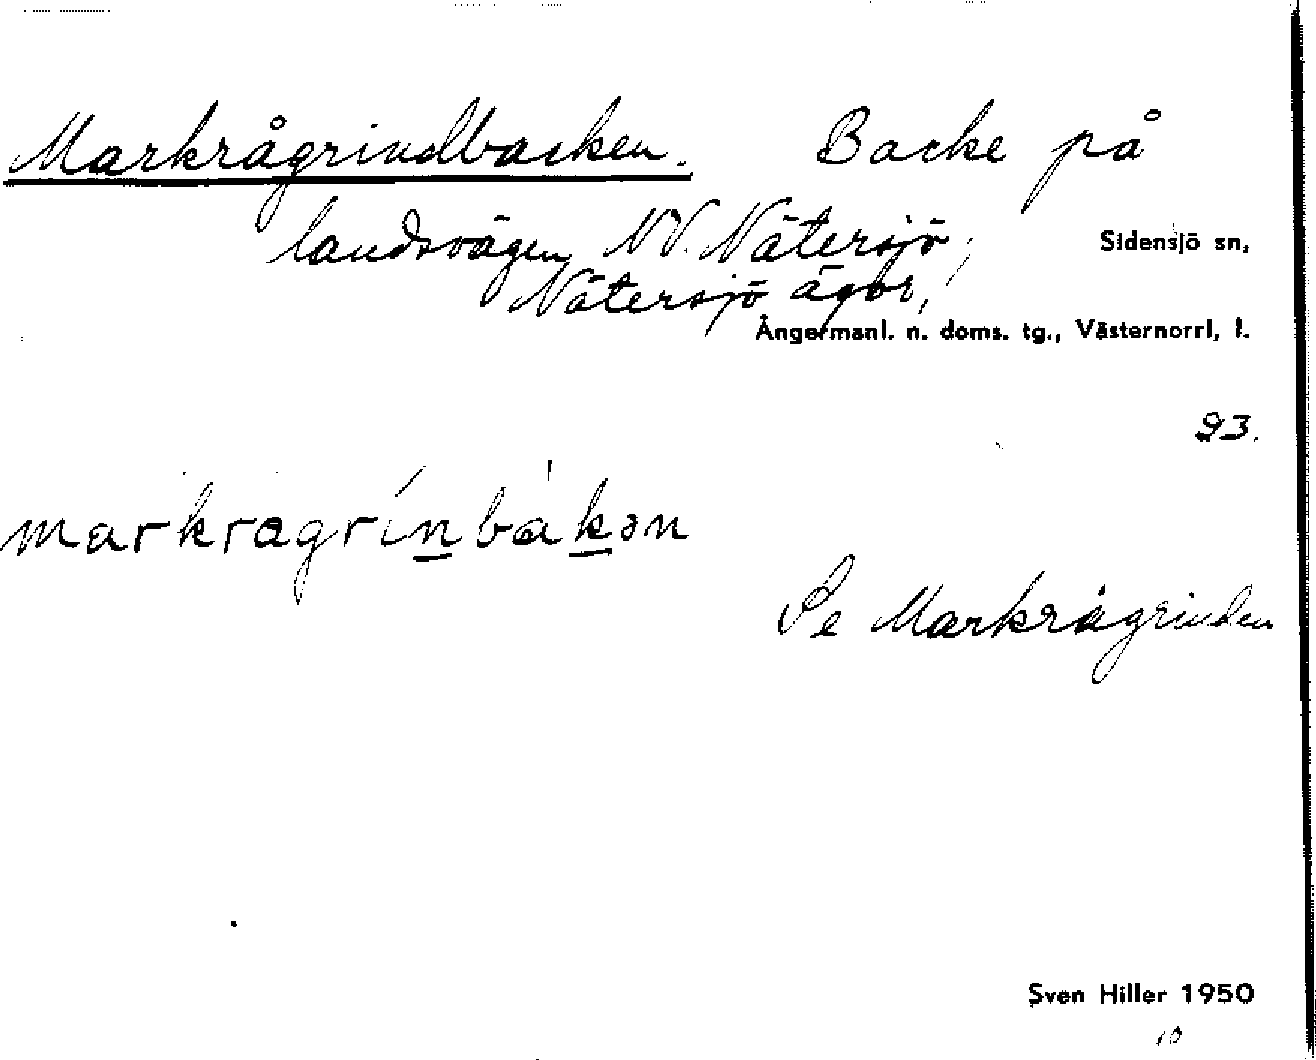 Markrågrindbacken. Backe på
landsvägen NV. Nätersjö,
Sidensjö sn,
Nätersjö ägor,
Ångermanl. n. doms. tg., Västernorrl. l.
93.
markragrínbákən
Se Markrågrinden
Sven Hiller 1950
10